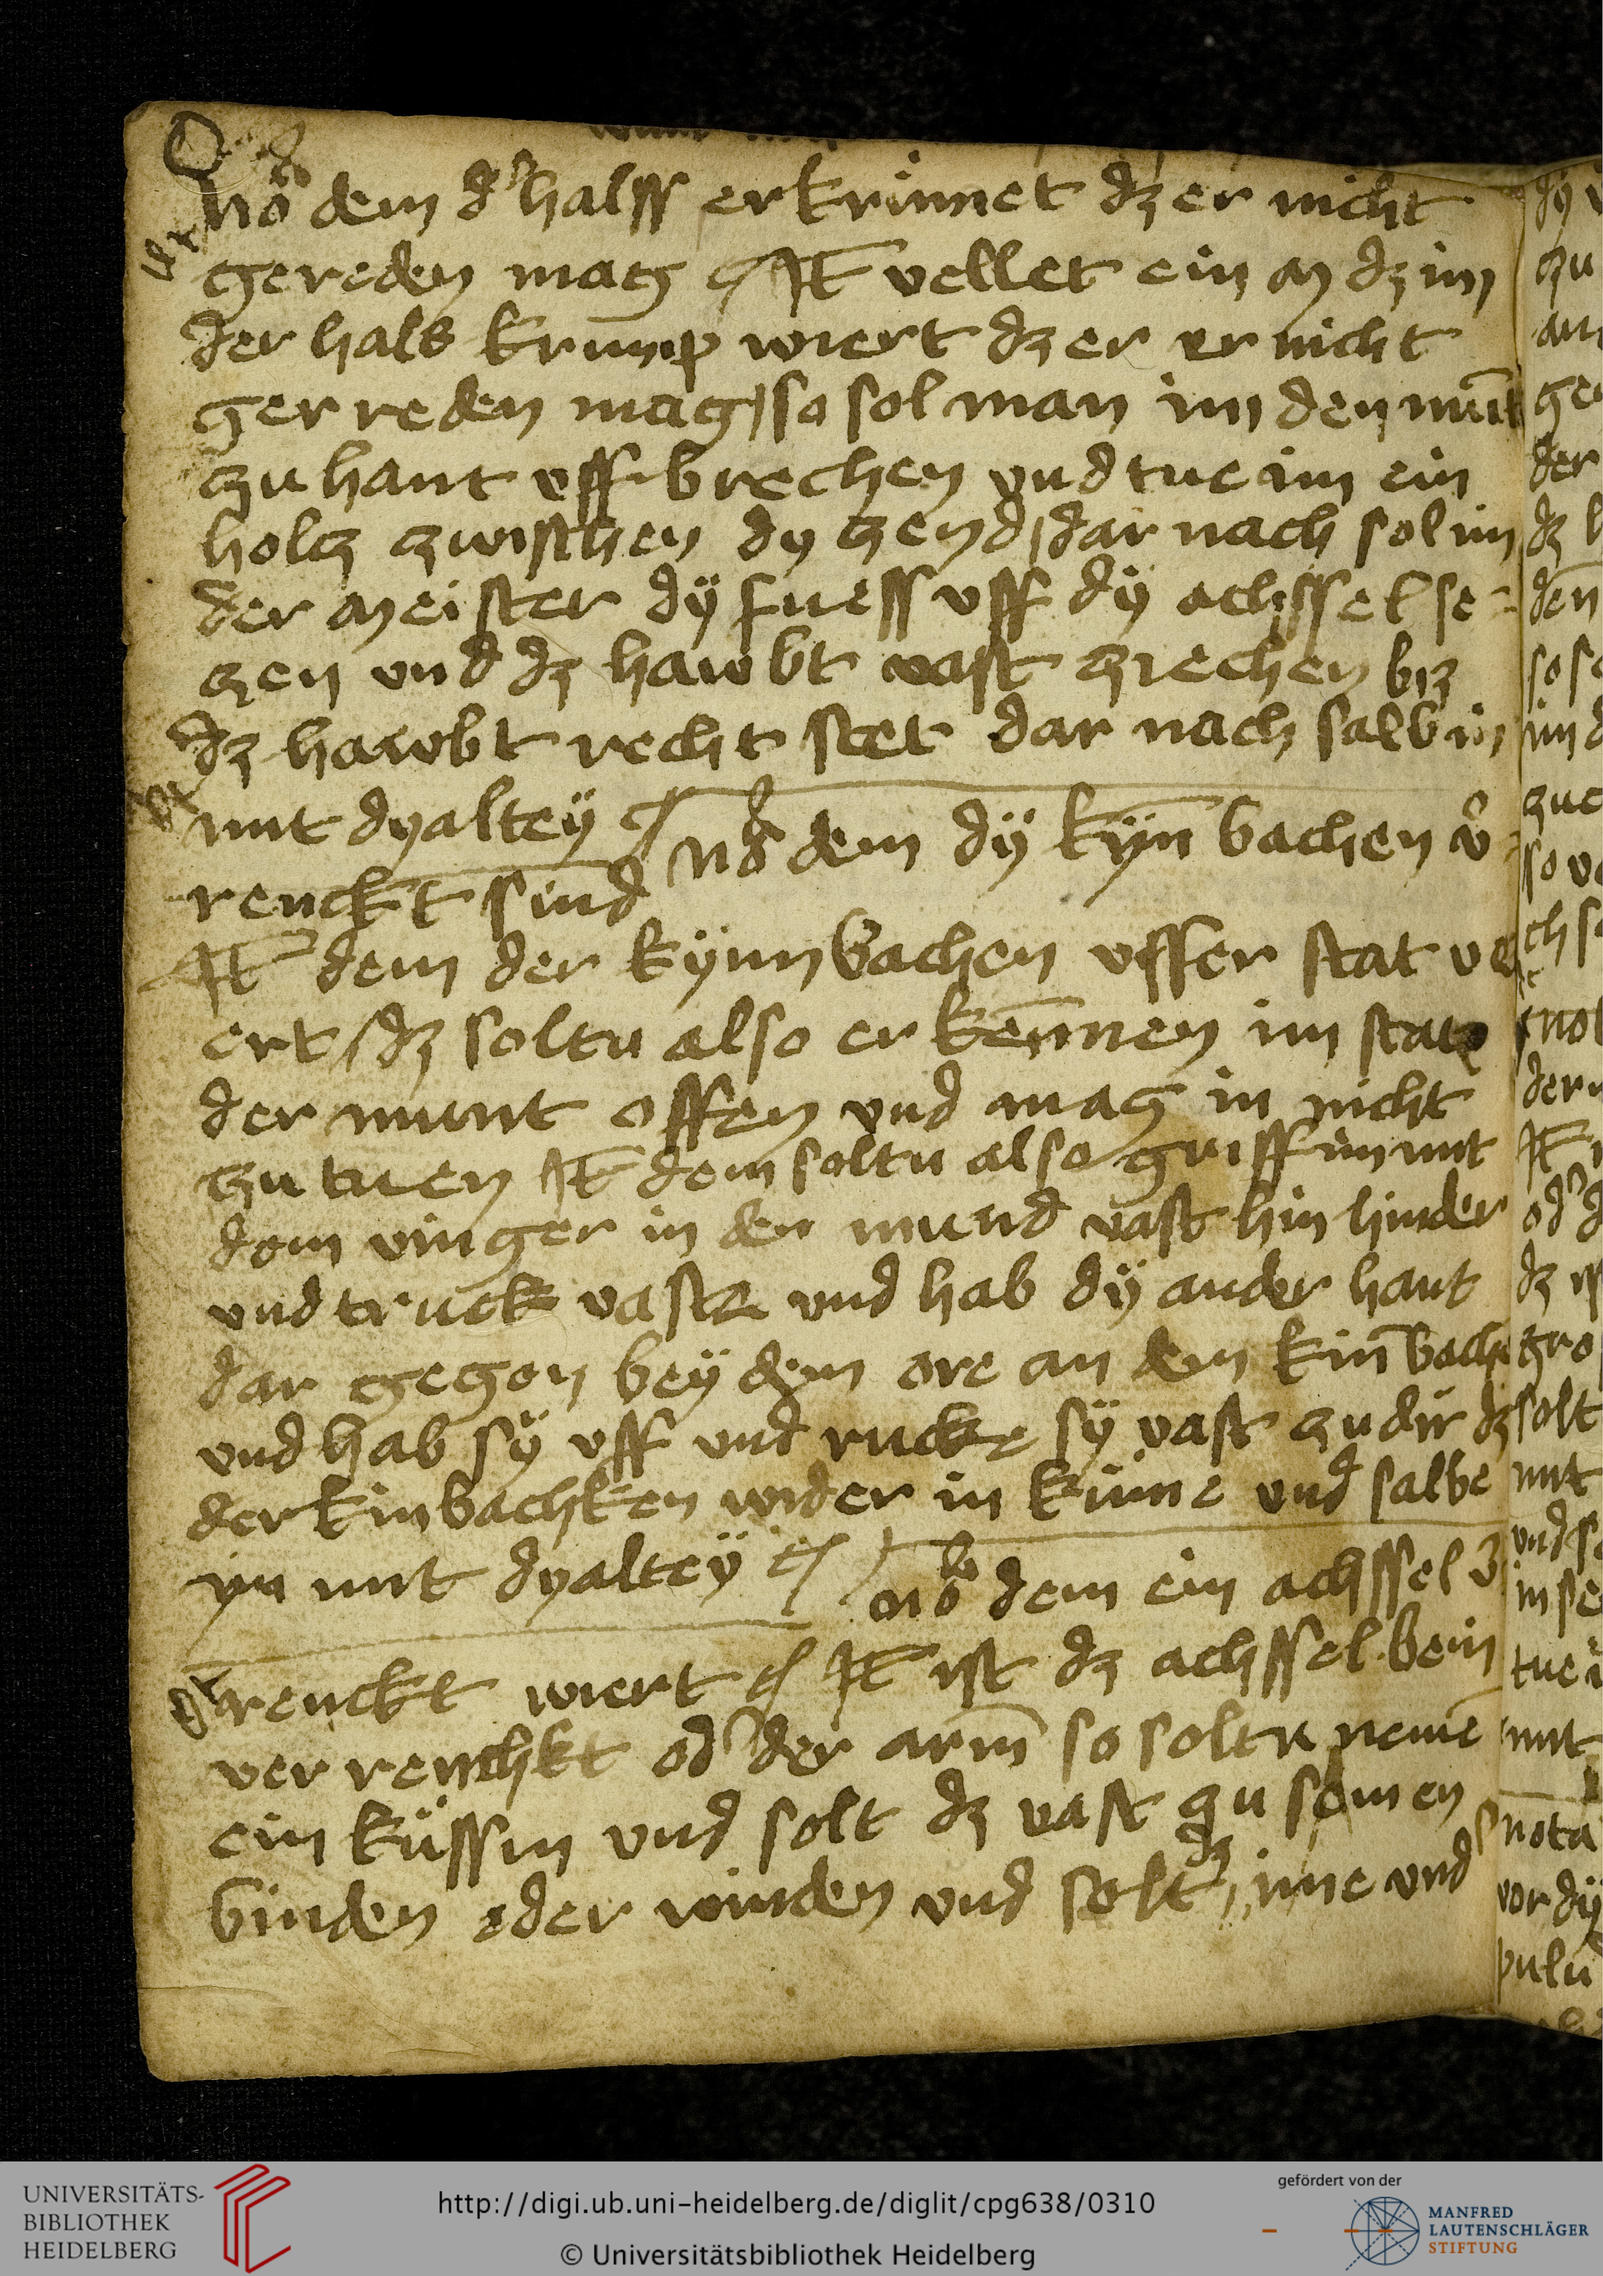 dem d' halss er krimet dz er nicht
gereden mag It vellet ein m dz im
der hals krump wiert dz er er nicht
ger reden mag so sol man im den munt
zu hant uff brechen und tue im ein
holcz zwischen dy zend dar nach sol im
der meister dÿ fuess uff dÿ achssel se-
zen und dz hawbt vast ziechen biz
dz hawbt recht stet dar nach salb in
mit dyalteÿ Nō dem dÿ kÿn bachen v-
renckt sind
It dem der kÿnn bachen usser stat ve
ert dz soltu also erkennen im stat
der munt offen und mag in nicht
zu tuen It dem soltu also griffin mit
dem vinger in den mund vast hin hinder
und truck vast und hab dÿ ander hant
dar gegen beÿ dem ore an dem kin bachē
und hab sÿ uff und rucke sÿ vast zu dir dz
der kinbachken wider in kume und salbe
yn mit dyaltey nō dem ein achssel v
renckt wiert It ist dz achssel bein
ver renchkt od' der arm so soltu nemē
ein küssin und solt dz vast zu samen
binden oder winden und solt dz inne und
UNIVERSITÄTS-
BIBLIOTHEK
HEIDELBERG
http://digi.ub.uni-heidelberg.de/diglit/cpg638/0310
© Universitätsbibliothek Heidelberg
gefördert von der
MANFRED
LAUTENSCHLÄGER
STIFTUNG